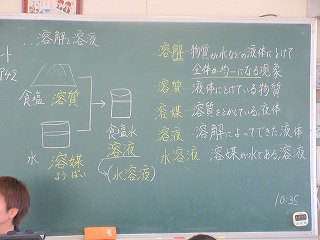 ∴溶解と溶液
ート
P42
食塩 溶質
水 溶媒
ようばい
食塩水
溶液
(水溶液)
溶解 物質が水などの液体にとけて
全体が均一になる現象
溶質 液体にとけている物質
溶媒 溶質をとかしている液体
溶液 溶解によってできた液体
水溶液 溶媒が水である溶液
10:35